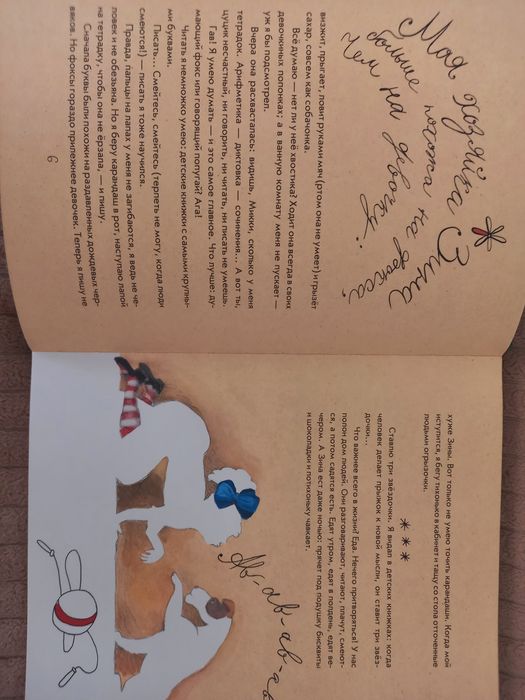 Моя хозяйка Зина
больше похожа на фокса,
чем на девочку:
визжит, прыгает, ловит руками мяч (ртом она не умеет) и грызёт
сахар, совсем как собачонка.
Всё думаю — нет ли у неё хвостика? Ходит она всегда в своих
девочкиных попонках; а в ванную комнату меня не пускает —
уж я бы подсмотрел.
Вчера она расхвасталась: видишь, Микки, сколько у меня
тетрадок. Арифметика — диктовка — сочинения... А вот ты,
цуцик несчастный, ни говорить, ни читать, ни писать не умеешь.
Гав! Я умею думать — и это самое главное. Что лучше: ду-
мающий фокс или говорящий попугай? Ага!
Читать я немножко умею: детские книжки с самыми крупны-
ми буквами.
Писать... Смейтесь, смейтесь (терпеть не могу, когда люди
смеются)! — писать я тоже научился.
Правда, пальцы на лапах у меня не загибаются, я ведь не че-
ловек и не обезьяна. Но я беру карандаш в рот, наступаю лапой
на тетрадку, чтобы она не ёрзала, — и пишу.
Сначала буквы были похожи на раздавленных дождевых чер-
вяков. Но фоксы гораздо прилежнее девочек. Теперь я пишу не
6
хуже Зины. Вот только не умею точить карандаши. Когда мой
иступится, я бегу тихонько в кабинет и тащу со стола отточенные
людьми огрызочки.
***
Ставлю три звёздочки. Я видал в детских книжках: когда
человек делает прыжок к новой мысли, он ставит три звёз-
дочки...
Что важнее всего в жизни? Еда. Нечего притворяться! У нас
полон дом людей. Они разговаривают, читают, плачут, смеют-
ся, а потом садятся есть. Едят утром, едят в полдень, едят ве-
чером. А Зина ест даже ночью: прячет под подушку бисквиты
и шоколадки и потихоньку чавкает.
Ав-ав-ав-ав